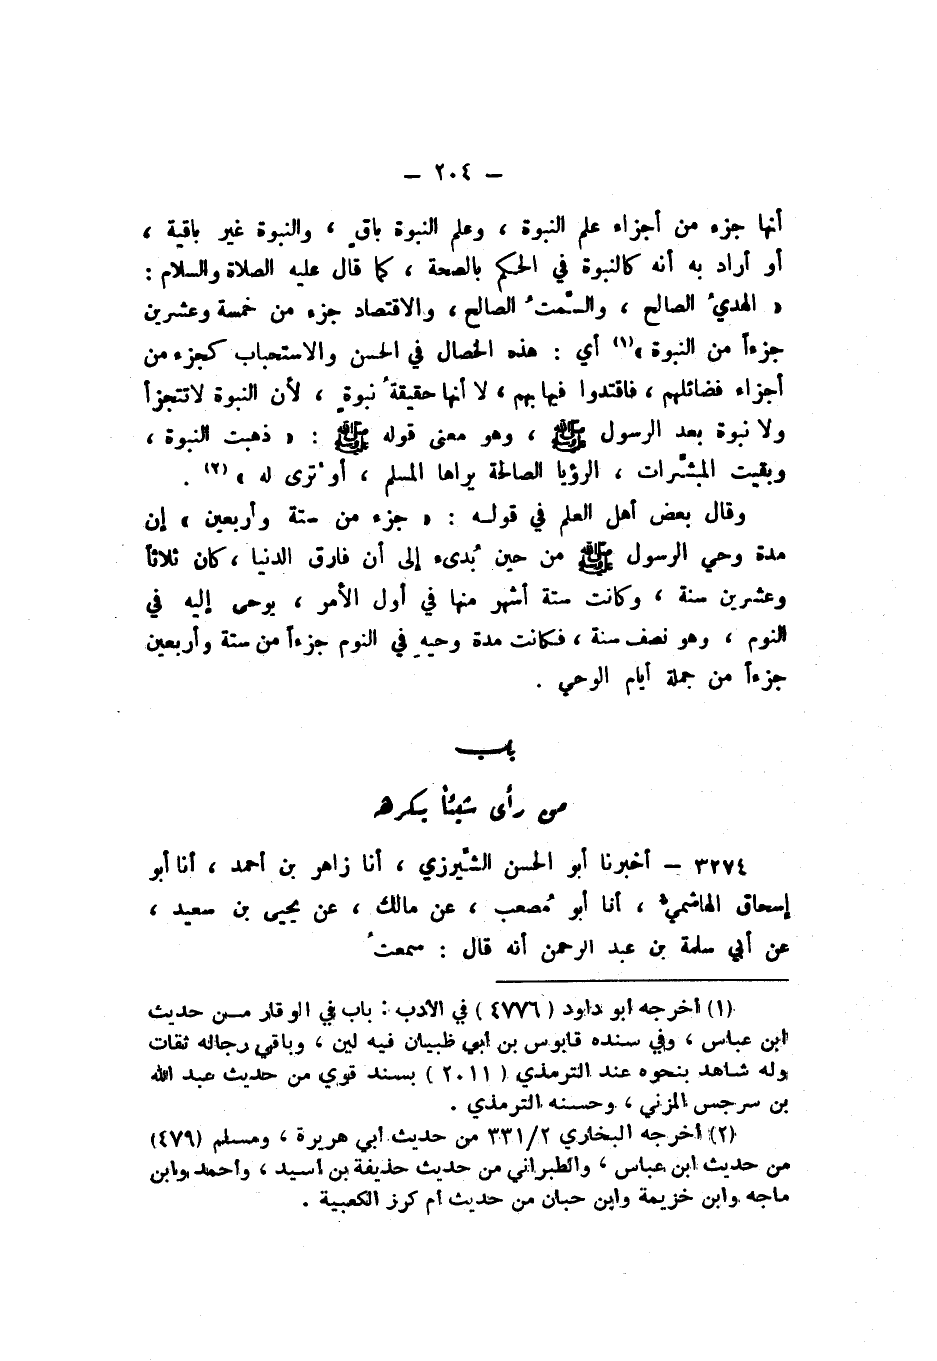 — ٢٠٤ —
أنها جزء من أجزاء علم النبوة ، وعلم النبوة باقٍ ، والنبوة غير باقية ،
أو أراد به أنه كالنبوة في الحكم بالصحة ، كما قال عليه الصلاة والسلام :
« الهديُ الصالح ، والسَّمتُ الصالح ، والاقتصاد جزء من خمسة وعشرين
جزءاً من النبوة »(١) أي : هذه الخصال في الحسن والاستحباب كجزء من
أجزاء فضائلهم ، فاقتدوا فيها بهم ، لا أنها حقيقةُ نبوةٍ ، لأن النبوة لا تتجزأ
ولا نبوة بعد الرسول ﷺ ، وهو معنى قوله ﷺ : « ذهبت النبوة ،
وبقيت المبشَّرات ، الرؤيا الصالحة يراها المسلم ، أو تُرى له » (٢) .
وقال بعض أهل العلم في قولـه : « جزء من ستة وأربعين » إن
مدة وحي الرسول ﷺ من حين بُدىء إلى أن فارق الدنيا ، كان ثلاثاً
وعشرين سنة ، وكانت ستة أشهر منها في أول الأمر ، يوحى إليه في
النوم ، وهو نصف سنة ، فكانت مدة وحيه في النوم جزءاً من ستة وأربعين
جزءاً من جملة أيام الوحي .
باب
من رأى شيئاً يكرهه
٣٢٧٤ – أخبرنا أبو الحسن الشَّيرزي ، أنا زاهر بن أحمد ، أنا أبو
إسحاق الهاشميُّ ، أنا أبو مُصعب ، عن مالك ، عن يحيى بن سعيد ،
عن أبي سلمة بن عبد الرحمن أنه قال : سمعتُ
(١) أخرجه أبو داود ( ٤٧٧٦ ) في الأدب : باب في الوقار مـن حديث
ابن عباس ، وفي سنده قابوس بن أبي ظبيان فيه لين ، وباقي رجاله ثقات
وله شاهد بنحوه عند الترمذي ( ٢٠١١ ) بسند قوي من حديث عبد الله
بن سرجس المزني ، وحسنه الترمذي .
(٢) أخرجه البخاري ٣٣١/٢ من حديث أبي هريرة ، ومسلم (٤٧٩)
من حديث ابن عباس ، والطبراني من حديث حذيفة بن أسيد ، وأحمد وابن
ماجه وابن خزيمة وابن حبان من حديث أم كرز الكعبية .